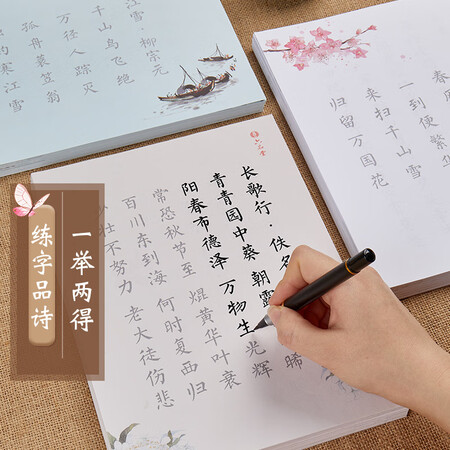 江雪·柳宗元
千山鸟飞绝
万径人踪灭
孤舟蓑笠翁
钓寒江雪
春
一到便繁华
来扫千山雪
归留万国花
长歌行·佚名
青青园中葵 朝露 晞
阳春布德泽 万物生光辉
常恐秋节至 焜黄华叶衰
百川东到海 何时复西归
少壮不努力 老大徒伤悲
一举两得
练字品诗